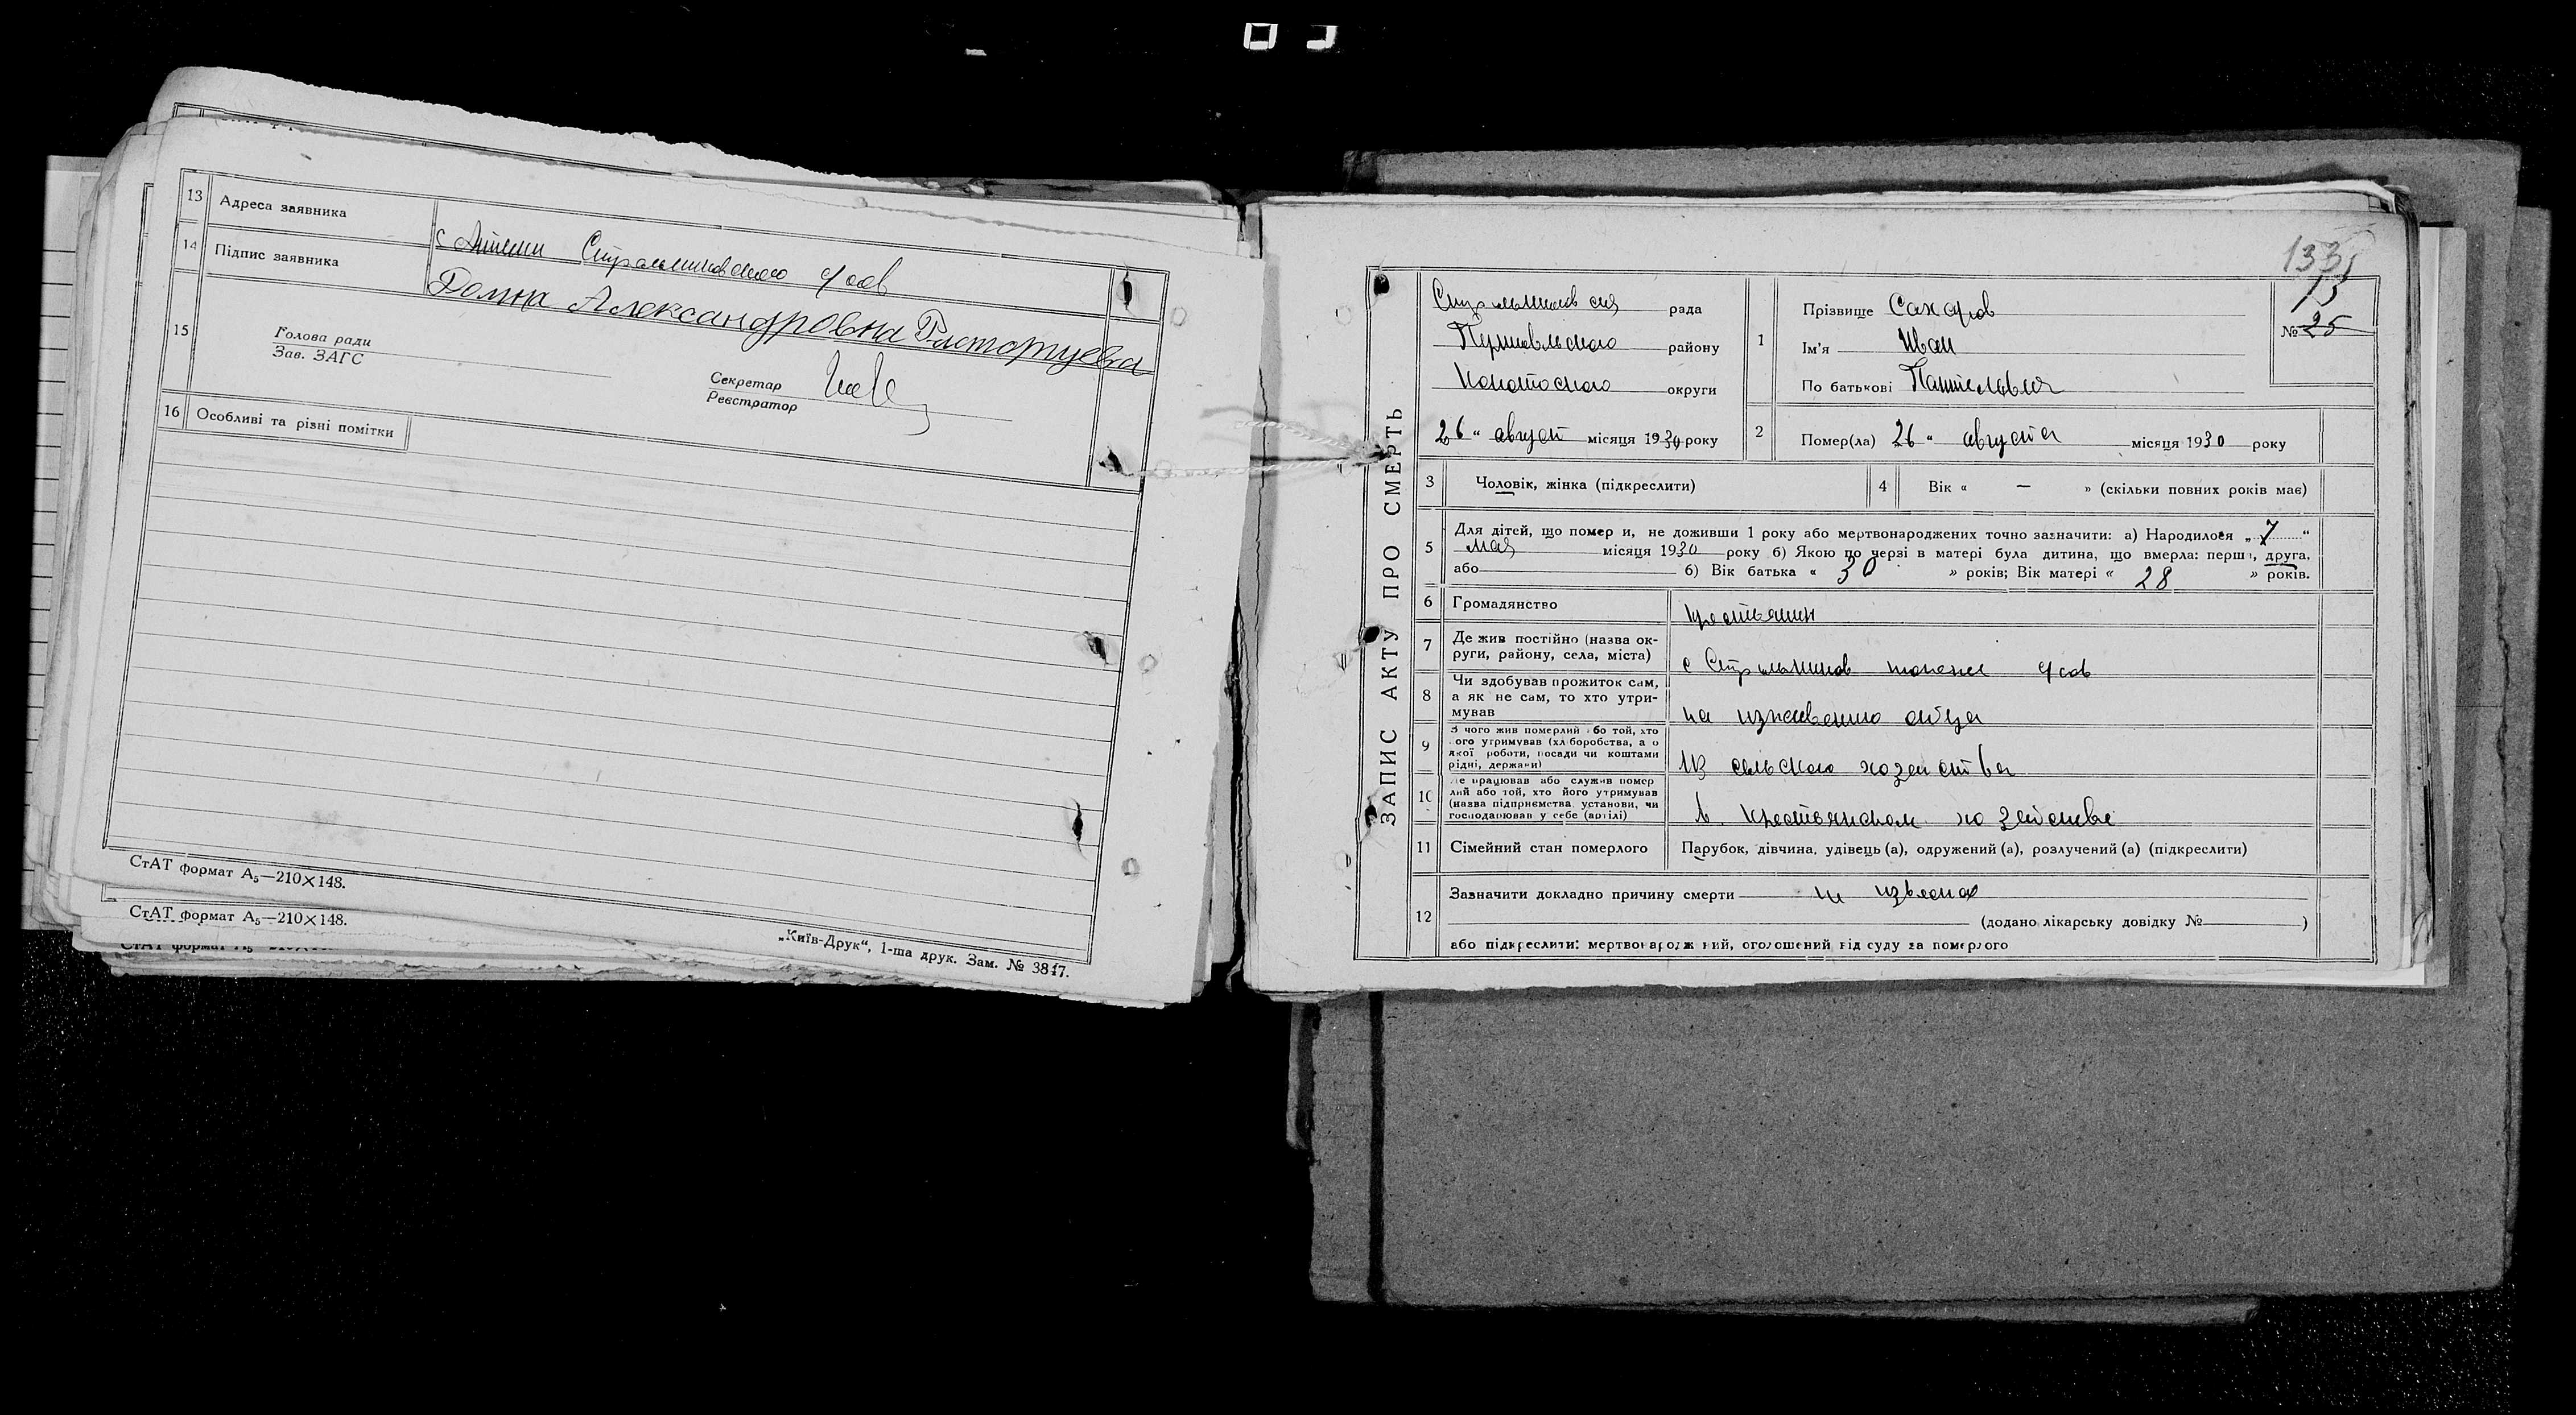 13 Адреса заявника
14 Підпис заявника
Домна Александровна Расторгуева
15 Голова ради
Зав. ЗАГС
Секретар
Реєстратор
16 Особливі та різні помітки
СтАТ формат А₅—210×148.
СтАТ формат А₅—210×148.
„Київ-Друк“, 1-ша друк. Зам. № 3847.
133
13
№ 25
ЗАПИС АКТУ ПРО СМЕРТЬ
рада
Путивльского району
округи
26 “ август місяця 1930 року
1 Прізвище Сахаров
Ім'я Иван
По батькові
2 Помер(ла) 26 “ августа місяця 1930 року
3 Чоловік, жінка (підкреслити)
4 Вік « — » (скільки повних років має)
5 Для дітей, що помер и, не доживши 1 року або мертвонароджених точно зазначити: а) Народився „ 7 “
мая місяця 1930 року б) Якою по черзі в матері була дитина, що вмерла: перша, друга,
або б) Вік батька « 30 » років; Вік матері « 28 » років.
6 Громадянство крестьянин
7 Де жив постійно (назва ок-
руги, району, села, міста)
8 Чи здобував прожиток сам,
а як не сам, то хто утри-
мував
на иждивению отца
9 З чого жив померлий або той, хто
його утримував (хліборобства, а о
якої роботи, посади чи коштами
рідні, держави)
Из сельского хозейства
10 Де працював або служив помер
лий або той, хто його утримував
(назва підприємства, установи, чи
господарював у себе (артілі)
в крестьянском хозействе
11 Сімейний стан померлого Парубок, дівчина, удівець (а), одружений (а), розлучений (а) (підкреслити)
12 Зазначити докладно причину смерти
(додано лікарську довідку № )
або підкреслити: мертвонароджений, оголошений від суду за померлого